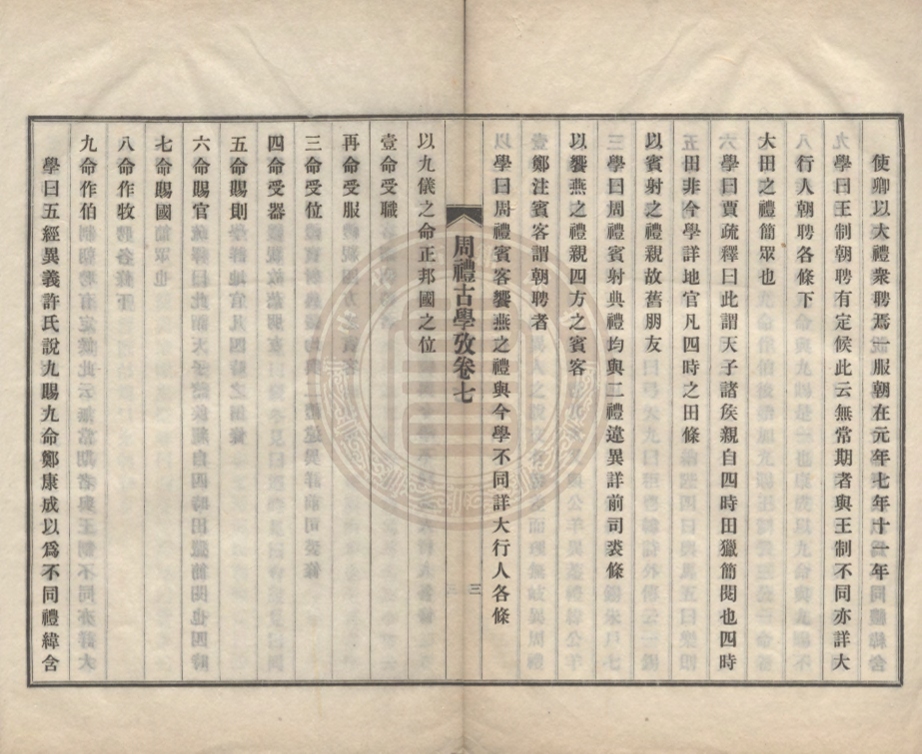 使卿以大禮衆聘焉一服朝在元年七年十一年
學曰王制朝聘有定候此云無常期者與王制不同亦詳大
行人朝聘各條下
大田之禮簡眾也
學曰賈疏釋曰此謂天子諸侯親自四時田獵簡閱也四時
田非今學詳地官凡四時之田條
以賓射之禮親故舊朋友
學曰周禮賓射典禮均與二禮違異詳前司裘條
以饗燕之禮親四方之賓客
鄭注賓客謂朝聘者
學曰周禮賓客饗燕之禮與今學不同詳大行人各條
周禮古學攷卷七
三
以九儀之命正邦國之位
壹命受職
再命受服
三命受位
四命受器
五命賜則
六命賜官
七命賜國
八命作牧
九命作伯
學曰五經異義許氏說九賜九命鄭康成以爲不同禮緯含